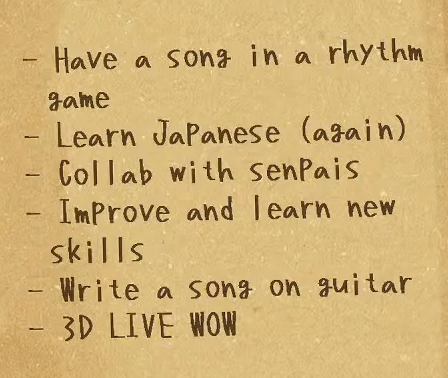 - Have a song in a rhythm
game
- Learn Japanese (again)
- Collab with senpais
- Improve and learn new
skills
- Write a song on guitar
- 3D LIVE WOW